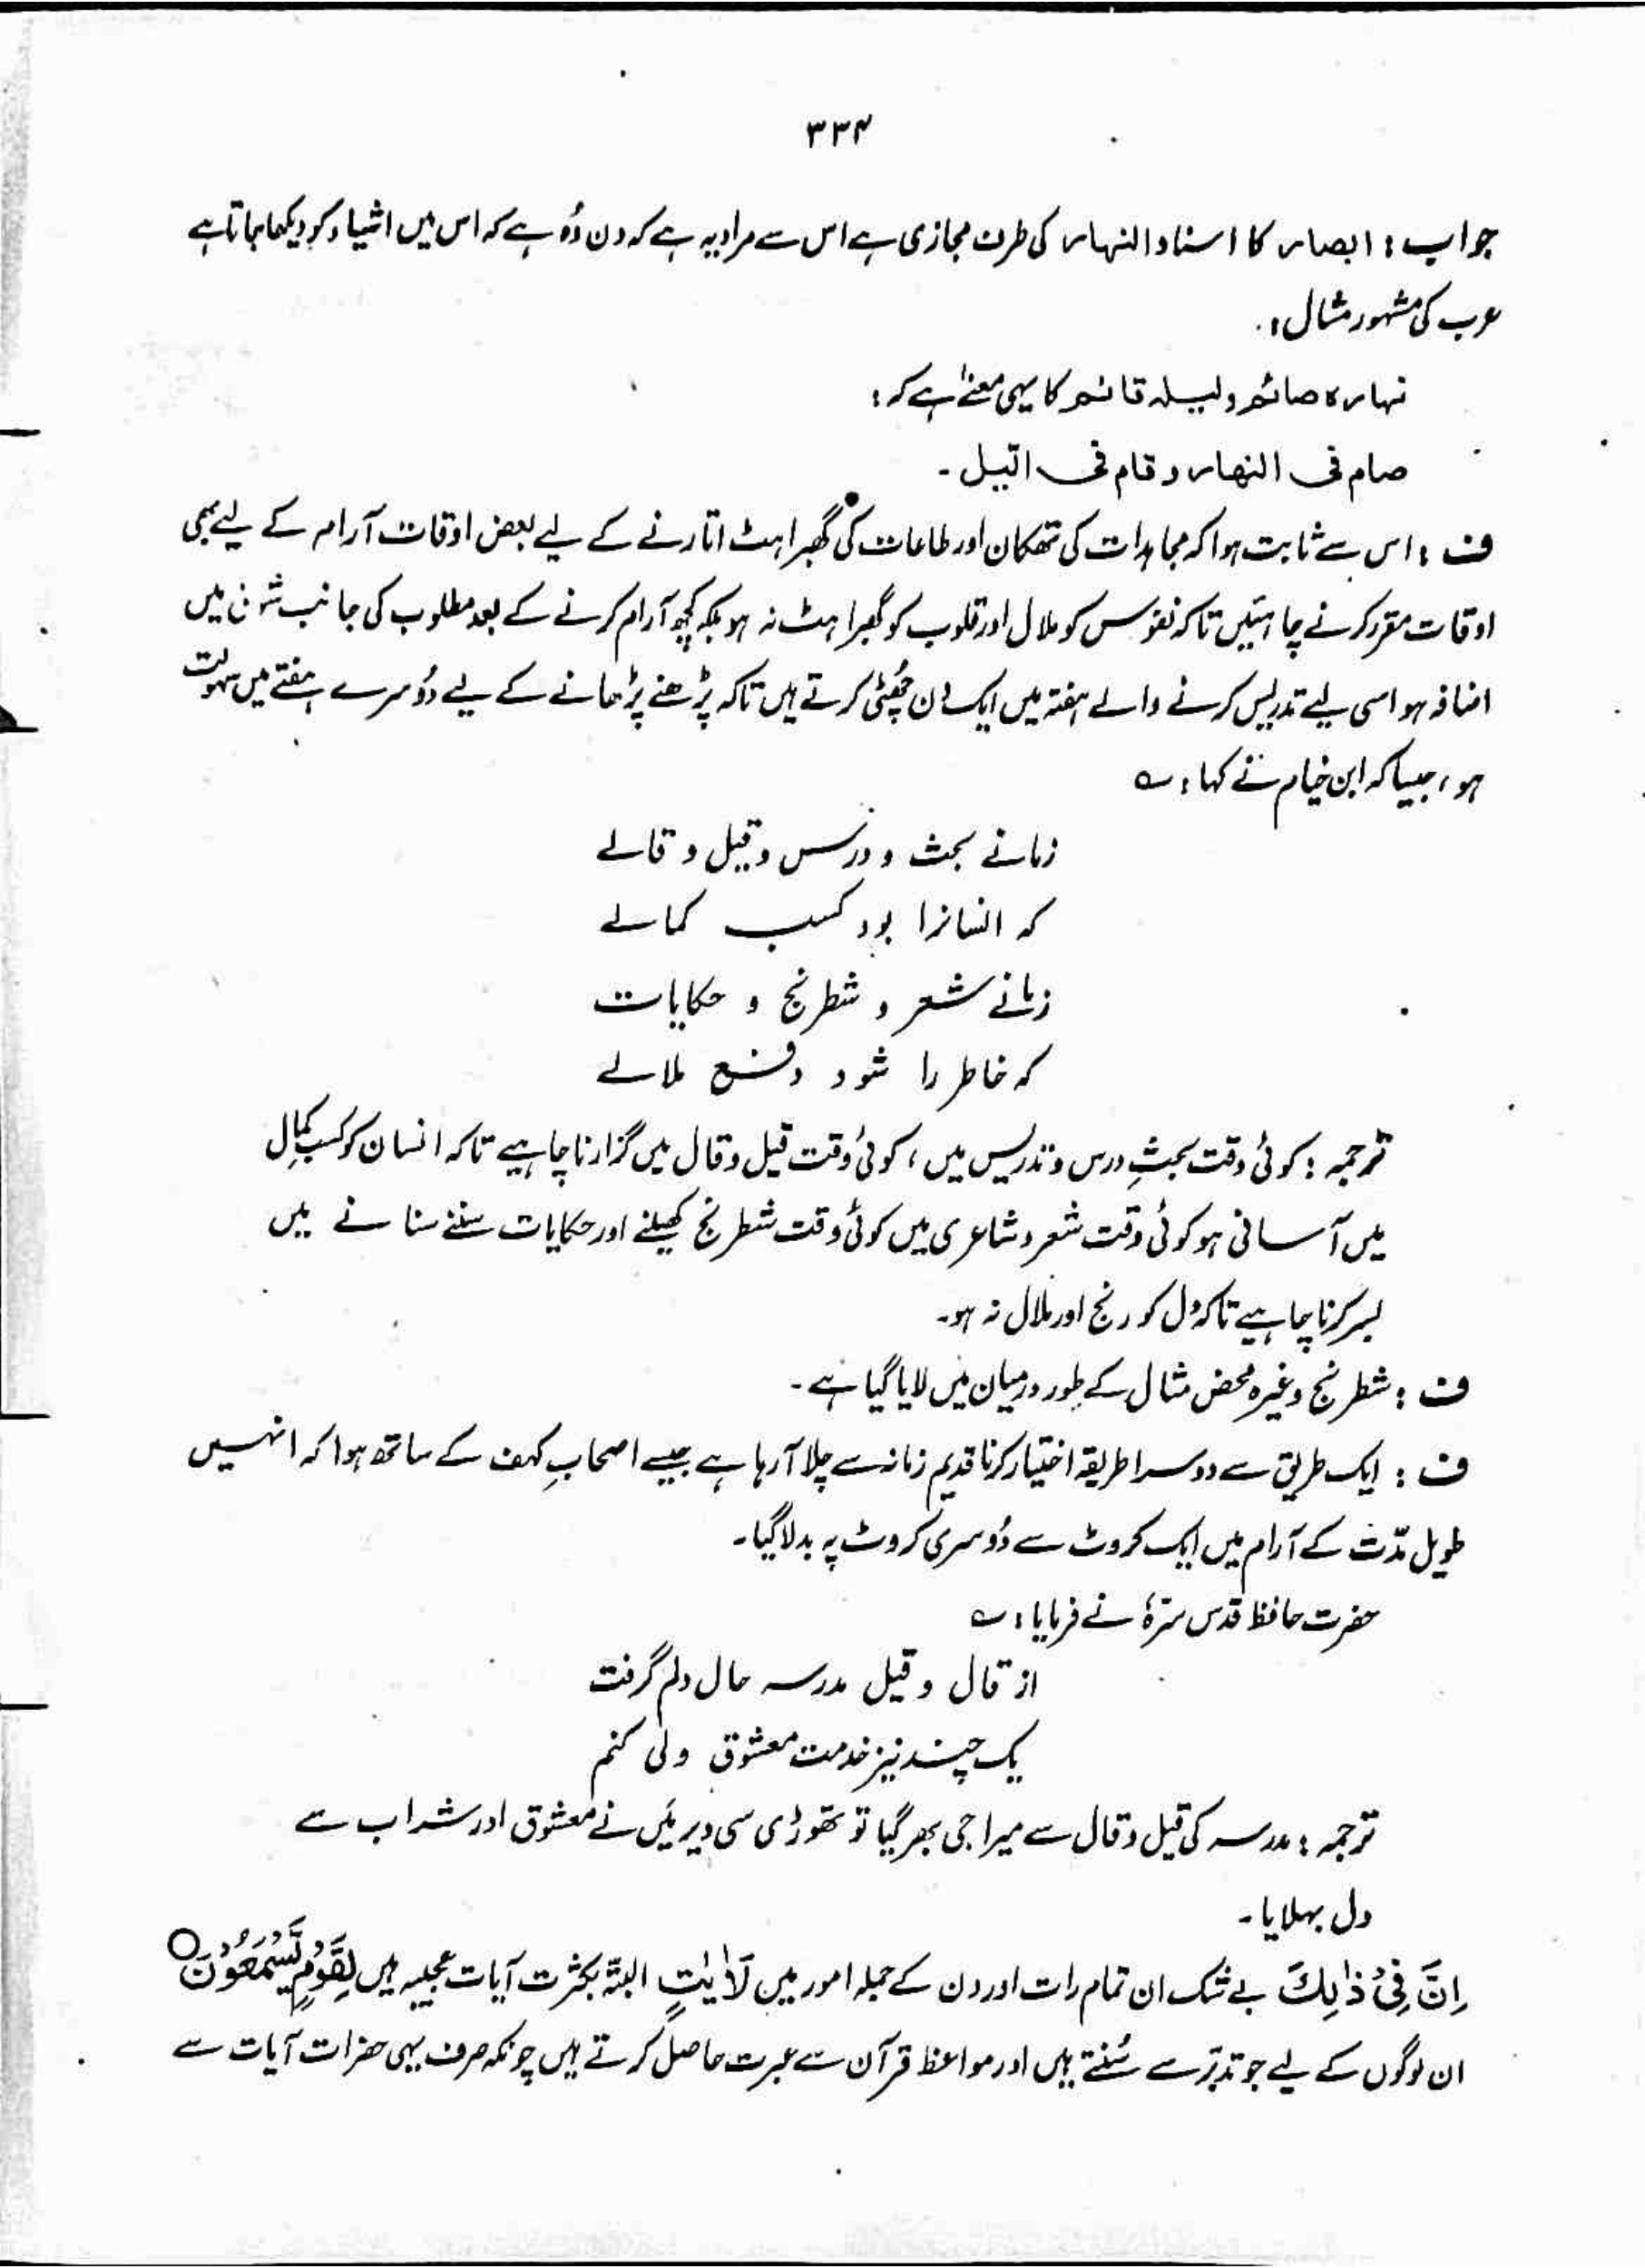 ۳۳۴
جواب : ابصار کا اسناد النہار کی طرف مجازی ہے اس سے مراد یہ ہے کہ دن وُہ ہے کہ اس میں اشیاء کو دیکھا جاتا ہے
عرب کی مشہور مثال :
نہارہ صائم ولیلہ قائم کا یہی معنٰے ہے کہ :
صام فی النھار و قام فی الیّل ۔
ف : اس سے ثابت ہوا کہ مجاہدات کی تھکان اور طاعات کی گھبراہٹ اتارنے کے لیے بعض اوقات آرام کے لیے بھی
اوقات مقرر کرنے چاہئیں تاکہ نفوس کو ملال اور قلوب کو گھبراہٹ نہ ہو بلکہ کچھ آرام کرنے کے بعد مطلوب کی جانب شوق میں
اضافہ ہو اسی لیے تدریس کرنے والے ہفتہ میں ایک دن چھُٹی کرتے ہیں تاکہ پڑھنے پڑھانے کے لیے دُوسرے ہفتے میں سہولت
ہو ، جیسا کہ ابن خیام نے کہا : ؎
زمانے بحث و درس و قیل و قالے
کہ انسانرا بود کسب کمالے
زمانے شعر و شطرنج و حکایات
کہ خاطر را شود دفع ملالے
ترجمہ : کوئی وقت بحثِ درس و تدریس میں ، کوئی وقت قیل و قال میں گزارنا چاہیے تاکہ انسان کو کسبِ کمال
میں آسانی ہو کوئی وقت شعر و شاعری میں کوئی وقت شطرنج کھیلنے اور حکایات سننے سنانے میں
بسر کرنا چاہیے تاکہ دل کو رنج اور ملال نہ ہو۔
ف : شطرنج وغیرہ محض مثال کے طور درمیان میں لایا گیا ہے ۔
ف : ایک طریق سے دوسرا طریقہ اختیار کرنا قدیم زمانہ سے چلا آرہا ہے جیسے اصحابِ کہف کے ساتھ ہوا کہ انہیں
طویل مدّت کے آرام میں ایک کروٹ سے دُوسری کروٹ پہ بدلا گیا ۔
حضرت حافظ قدس سرّہٗ نے فرمایا : ؎
از قال و قیل مدرسہ حال دلم گرفت
یک چند نیز خدمت معشوق ولی کنم
ترجمہ : مدرسہ کی قیل و قال سے میرا جی بھر گیا تو تھوڑی سی دیر میں نے معشوق اور شراب سے
دل بہلایا ۔
اِنَّ فِیْ ذٰلِکَ بے شک ان تمام رات اور دن کے جملہ امور میں لَاٰیٰتٍ البتّہ بکثرت آیات عجیبہ ہیں لِقَوْمٍ یَّسْمَعُوْنَ○
ان لوگوں کے لیے جو تدبّر سے سُنتے ہیں اور مواعظ قرآن سے عبرت حاصل کرتے ہیں چونکہ صرف یہی حضرات آیات سے